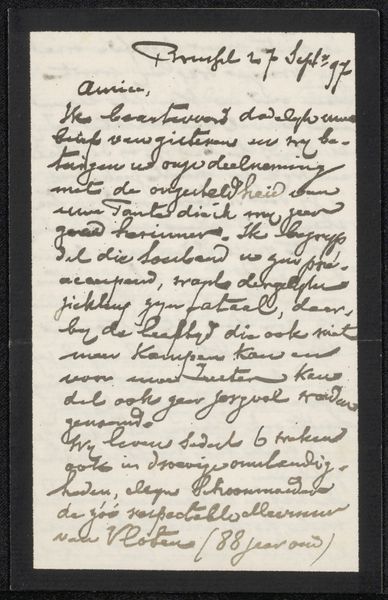 Brussel 27 Sept. 97
Amice,
Ik beantwoord dadelijk uwe
brief van gisteren en wij be-
tuigen u onze deelneming
met de ongesteldheid van
uwe Tante die ik mij zeer
goed herinner. Ik begrijp
dat die toestand u zeer pré-
occupeerd, want dergelijke
ziekten zijn fataal, daar-
bij de leeftijd die ook niet
meer kampen kan en
voor uwe Zuster kan
dat ook zeer zorgvol worden
genoemd.
Wij leven sedert 6 weken
ook in droevige omstandig-
heden, mijne Schoonmoeder
de zóó respectable Mevrouw
van Vloten (88 jaar oud)